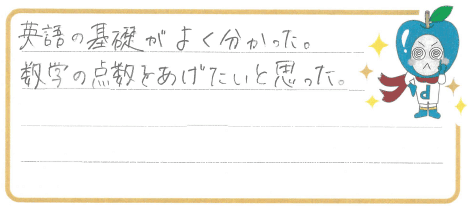 英語の基礎がよく分かった。
数学の点数をあげたいと思った。
d